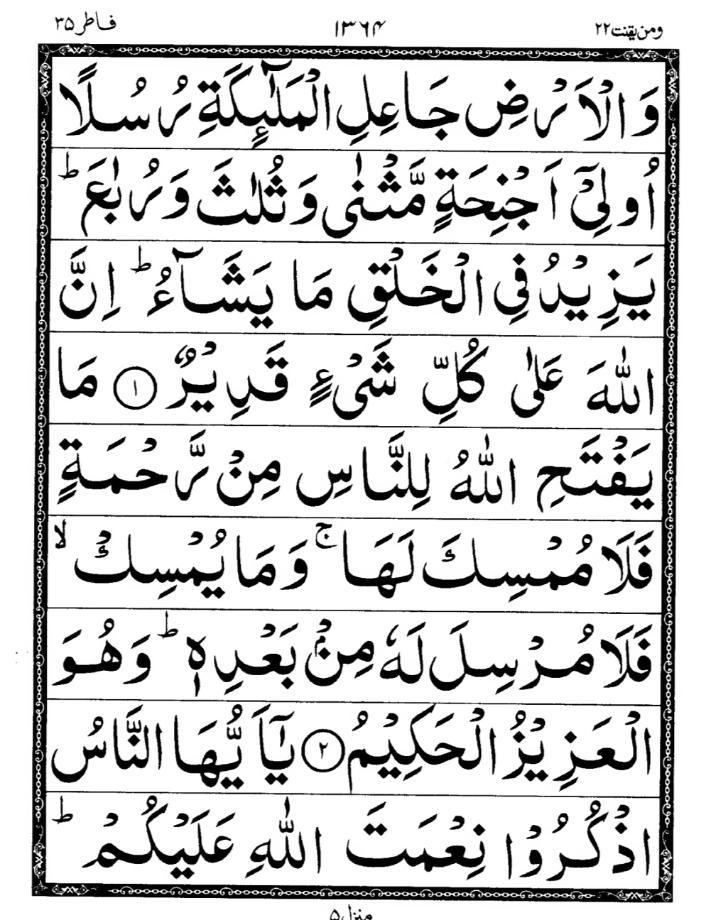 ومن یقنت ۲۲ ۱۳۶۴ فاطر ۳۵
وَالۡاَرۡضِ جَاعِلِ الۡمَلٰٓئِكَةِ رُسُلًا
اُولِىۡۤ اَجۡنِحَةٍ مَّثۡنٰى وَثُلٰثَ وَرُبٰعَ ؕ
يَزِيۡدُ فِى الۡخَـلۡقِ مَا يَشَآءُ ؕ اِنَّ
اللّٰهَ عَلٰى كُلِّ شَىۡءٍ قَدِيۡرٌ ۝۱ مَا
يَفۡتَحِ اللّٰهُ لِلنَّاسِ مِنۡ رَّحۡمَةٍ
فَلَا مُمۡسِكَ لَهَا ۚ وَمَا يُمۡسِكۡ ۙ
فَلَا مُرۡسِلَ لَهٗ مِنۡۢ بَعۡدِهٖ ؕ وَهُوَ
الۡعَزِيۡزُ الۡحَكِيۡمُ ۝۲ يٰۤاَيُّهَا النَّاسُ
اذۡكُرُوۡا نِعۡمَتَ اللّٰهِ عَلَيۡكُمۡ ؕ
منزل ۵